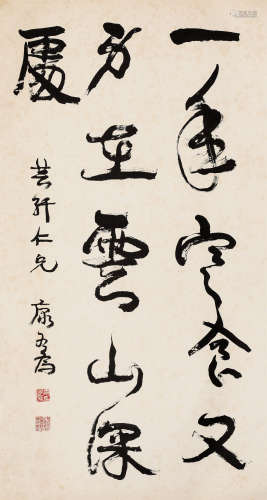 一年寒食又
身在雲山深
處
芸軒仁兄 康有為